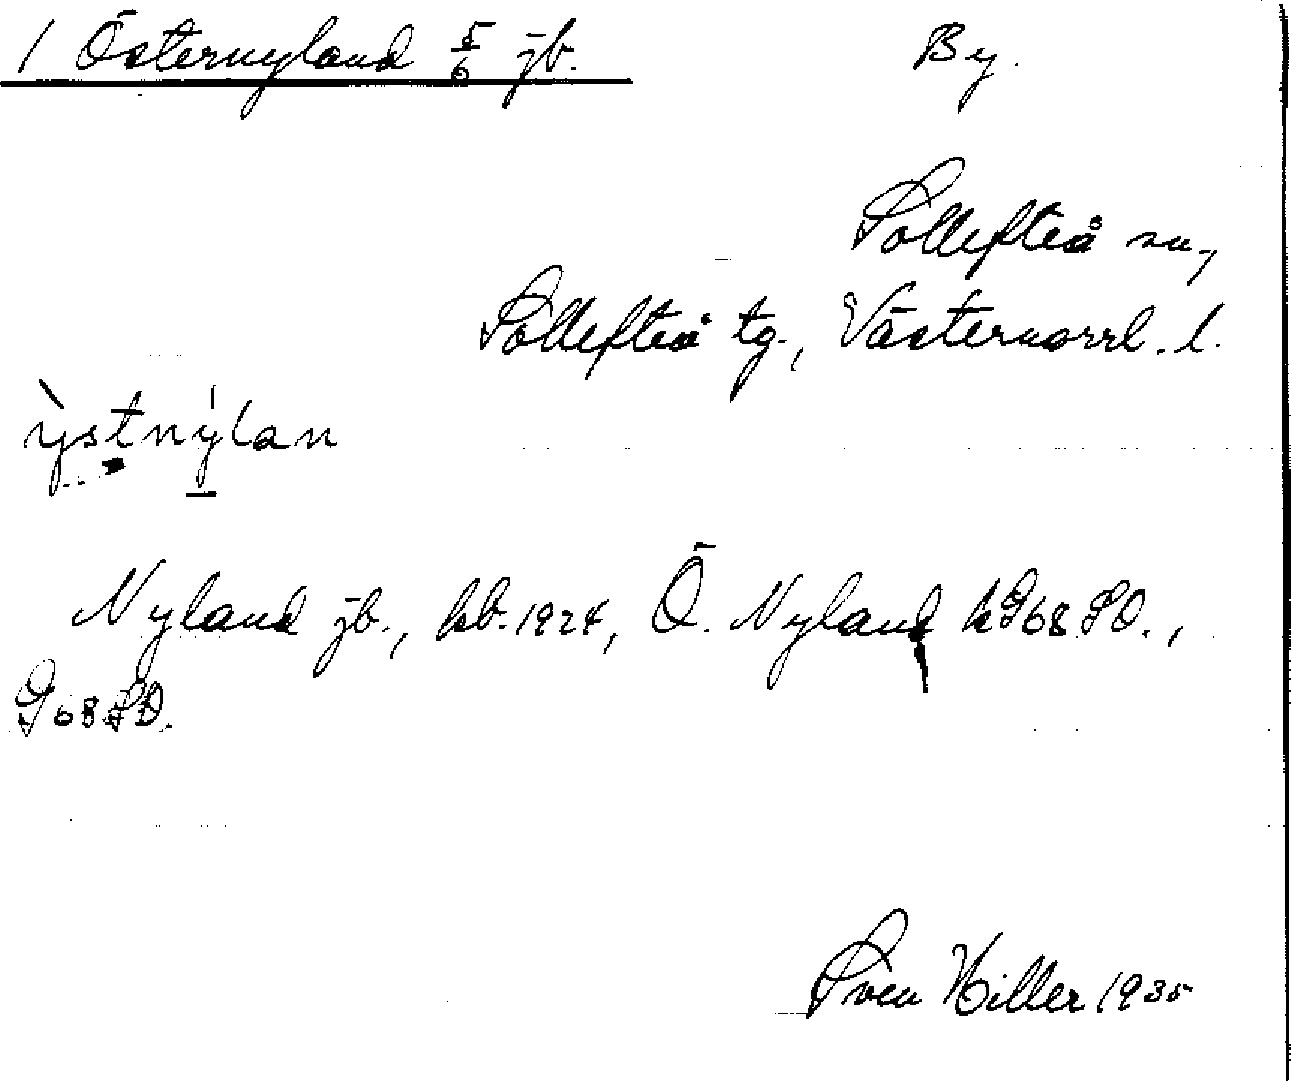 1 Östernyland 5/6 jb. By.
Sollefteå sn.,
Sollefteå tg., Västernorrl. l.
ỳstnýlan
Nyland jb., kb. 1924, Ö. Nyland kG68SO.,
G68SO.
Sven Hiller 1935